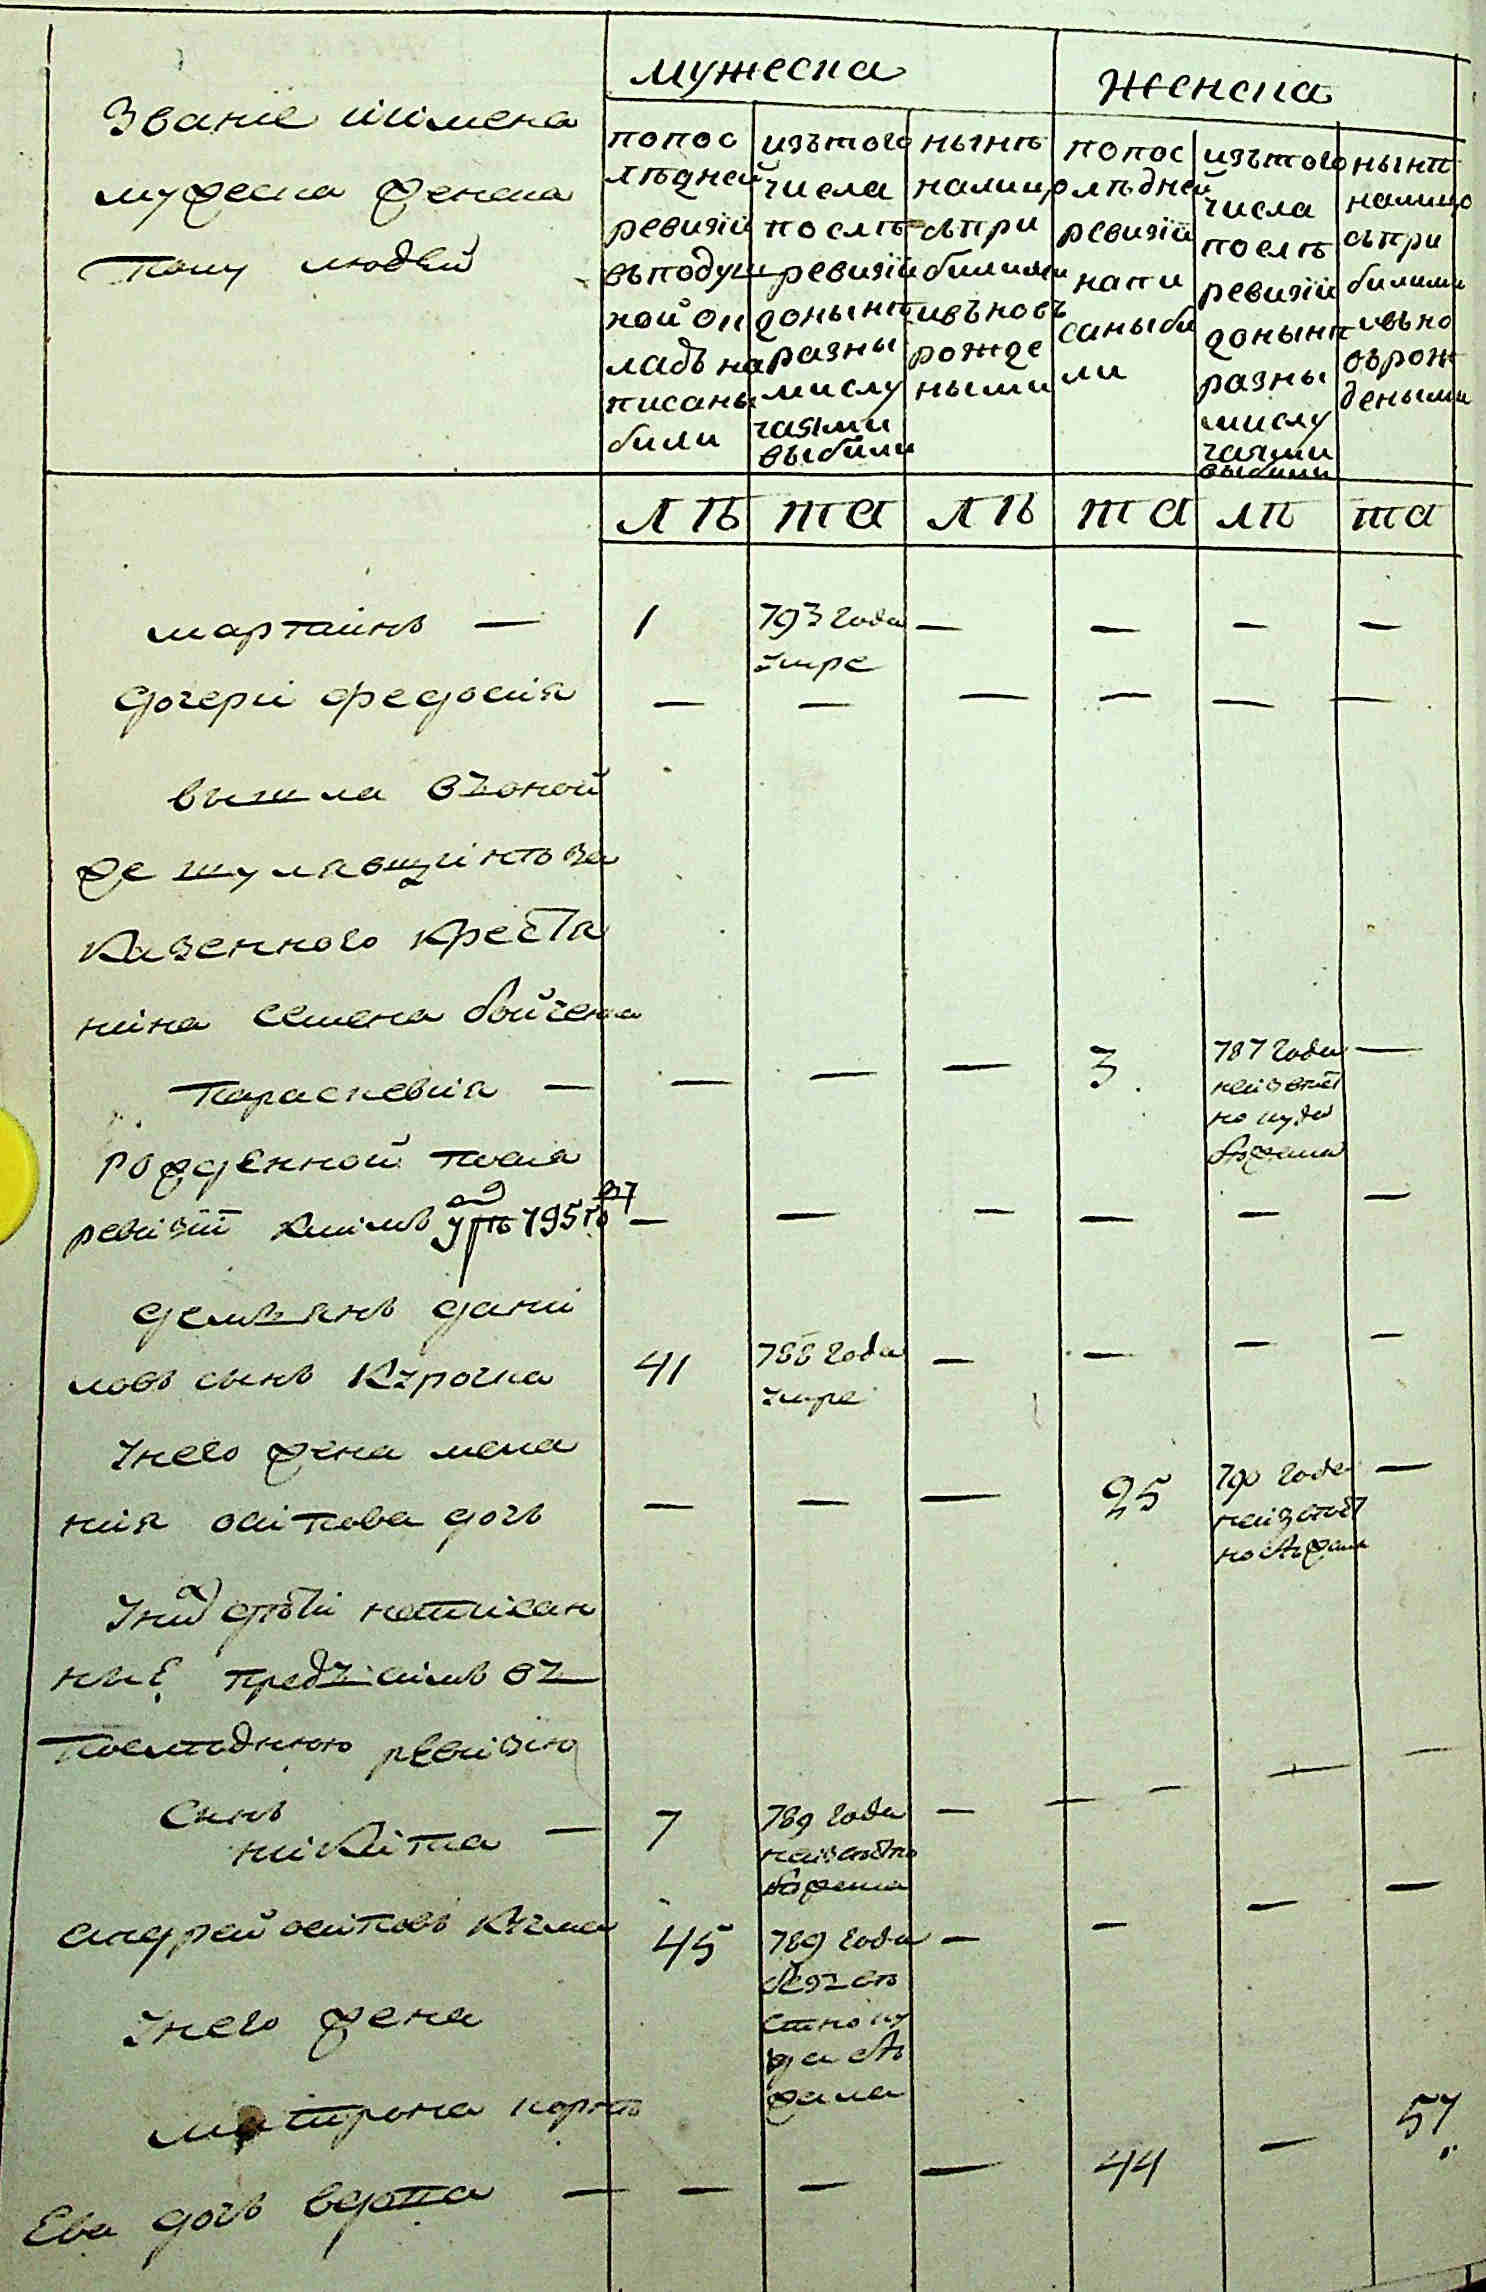 Званіе иимена
мужеска женска
полу людей
мужеска
женска
попос
лѣдней
ревизіи
въподуш
ной ок
ладъ на
писаны
били
изътого
числа
послѣ
ревизіи
донынѣ
разны
мислу
чаями
выбили
нынѣ
налицо
съпри
билими
ивъновъ
рожде
ными
попос
лѣдней
ревизіи
напи
саны би
ли
изътого
числа
послѣ
ревизіи
донынѣ
разны
мислу
чаями
выбили
нынѣ
налицо
съпри
билими
ивъно
ворож
деными
лѣ та лѣ та лѣ та
мартинъ — 1 793 года — — — —
умре
дочери федосия — — — — — —
вышла въоной
же шулявщинѣ за
казенного крестя
нина семена бойченка
параскевия — — — — 3 787 года —
неизвѣст
но куда
бѣжала
рожденной посля
ревизіи климъ умре 795 го — — — — — —
демьянъ дани
ловъ сынъ Курочка 41 788 года — — — —
умре
Унего жена мела
ния осипова дочь — — — 25 790 года —
неизвѣст
но бѣжала
Уних дѣти написан
ные предъ симъ въ
последнюю ревизию
Сынъ
никита — 7 789 года — — — —
неизвѣстно
бѣжала
андрей осиповъ 45 789 года — — — —
безъвѣ
стно ку
да бѣ
жала
Унего жена
матрона корнѣ
Ева дочь вдова — — — — 44 — 57